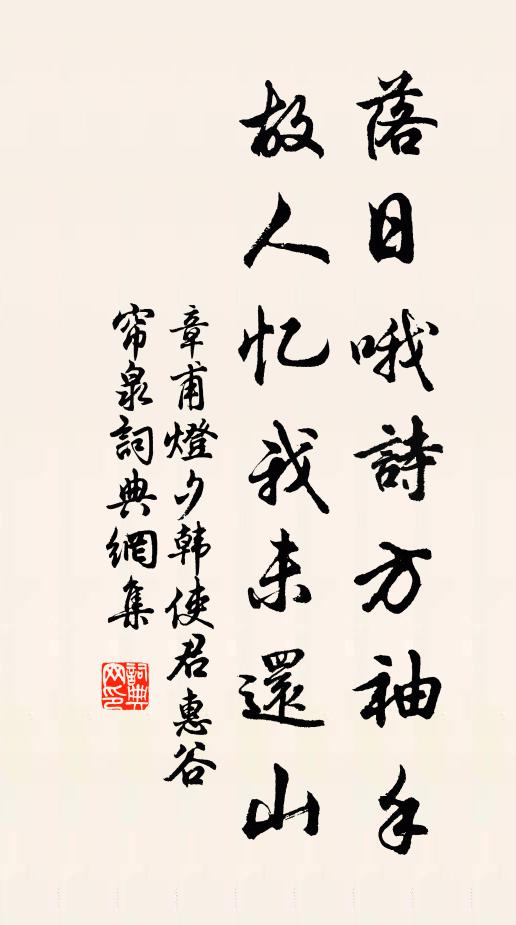 落日哦詩方袖手
故人忆我未還山
章甫燈夕韩使君惠谷
帘泉詞典網集
詞典网印